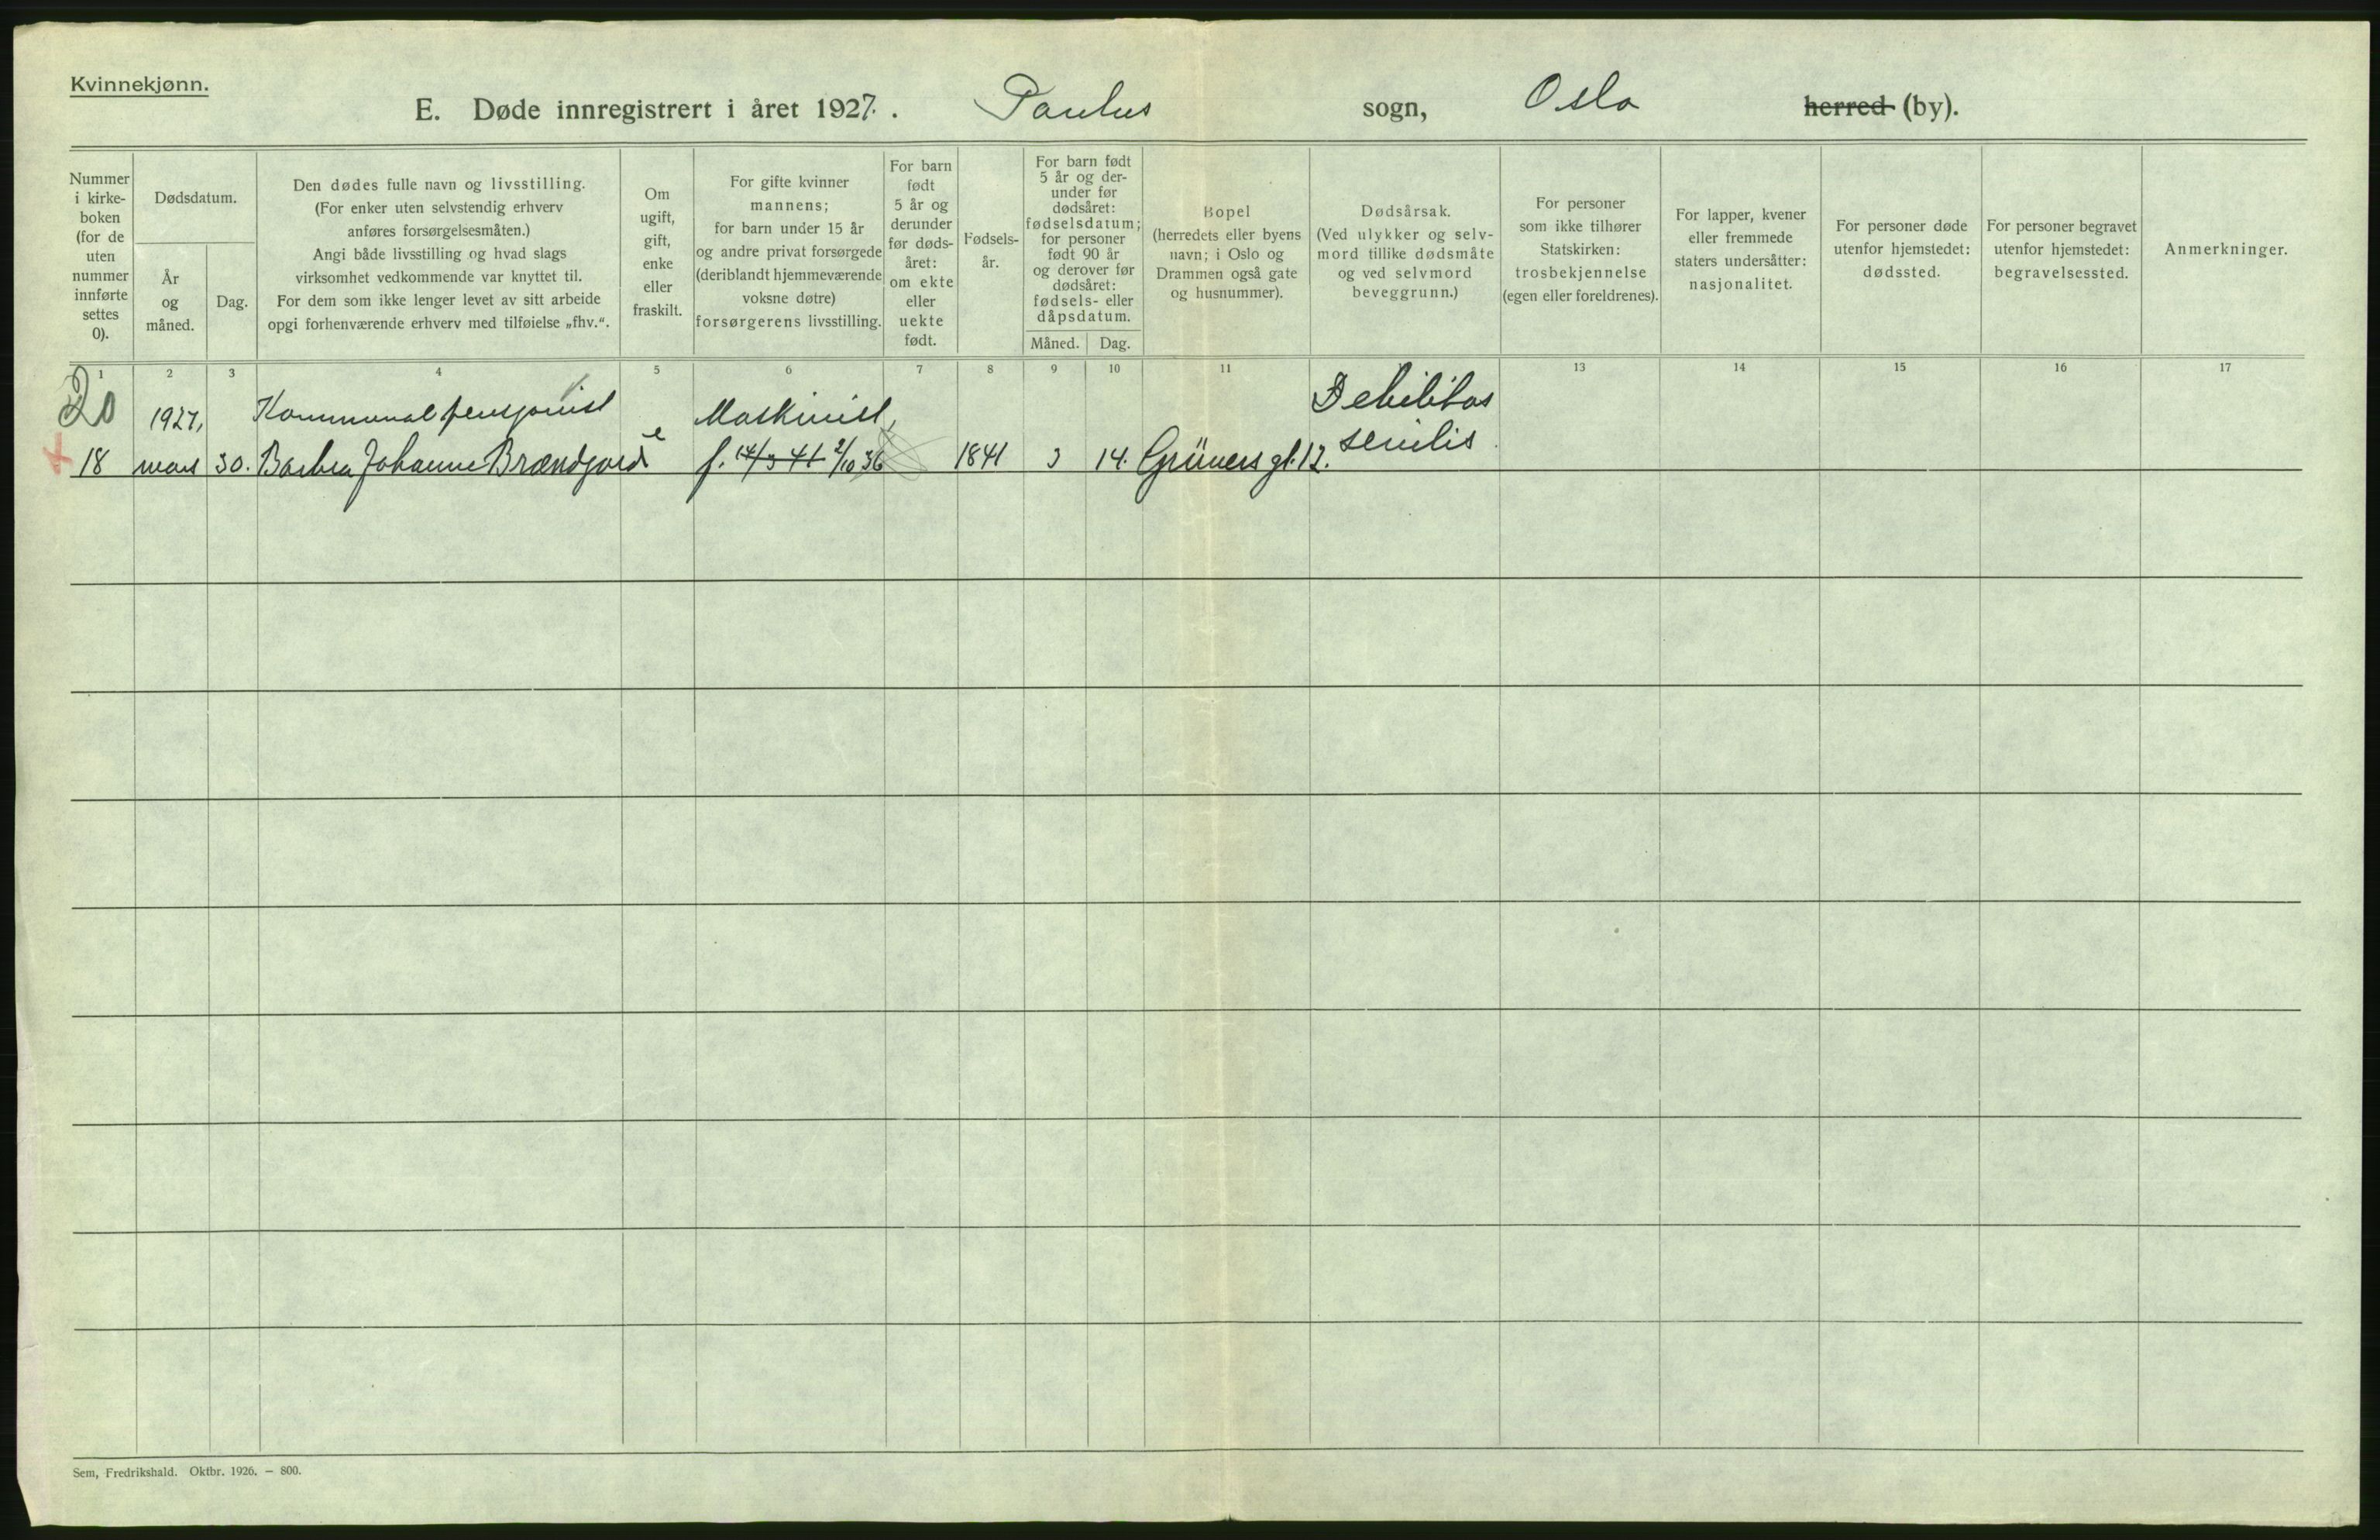 Kvinnekjønn.
E. Døde innregistrert i året 1927. . Paulus sogn, Oslo herred (by).
Nummer
i kirke-
boken
(for de
uten
nummer
innførte
settes
0).
Dødsdatum.
År
og
måned.
Dag.
Den dødes fulle navn og livsstilling.
(For enker uten selvstendig erhverv
anføres forsørgelsesmåten.)
Angi både livsstilling og hvad slags
virksomhet vedkommende var knyttet til.
For dem som ikke lenger levet av sitt arbeide
opgi forhenværende erhverv med tilføielse „fhv.“.
Om
ugift,
gift,
enke
eller
fraskilt.
For gifte kvinner
mannens;
for barn under 15 år
og andre privat forsørgede
(deriblandt hjemmeværende
voksne døtre)
forsørgerens livsstilling.
For barn
født
5 år og
derunder
før døds-
året:
om ekte
eller
uekte
født.
Fødsels-
år.
For barn født
5 år og der-
under før
dødsåret:
fødselsdatum;
for personer
født 90 år
og derover før
dødsåret:
fødsels- eller
dåpsdatum.
Måned. Dag.
Bopel
(herredets eller byens
navn; i Oslo og
Drammen også gate
og husnummer).
Dødsårsak.
(Ved ulykker og selv-
mord tillike dødsmåte
og ved selvmord
beveggrunn.)
For personer
som ikke tilhører
Statskirken:
trosbekjennelse
(egen eller foreldrenes).
For lapper, kvener
eller fremmede
staters undersåtter:
nasjonalitet.
For personer døde
utenfor hjemstedet:
dødssted.
For personer begravet
utenfor hjemstedet:
begravelsessted.
Anmerkninger.
1 2 3 4 5 6 7 8 9 10 11 13 14 15 16 17
20 1927, Kommunal pensjonist Maskinist, Debilitas
18 mars 30. Barbra Johanne Brændjord e f. 14/3 41 2/10 36 1841 3 14. Grüners gt. 12. senilis
Sem, Fredrikshald. Oktbr. 1926. — 800.